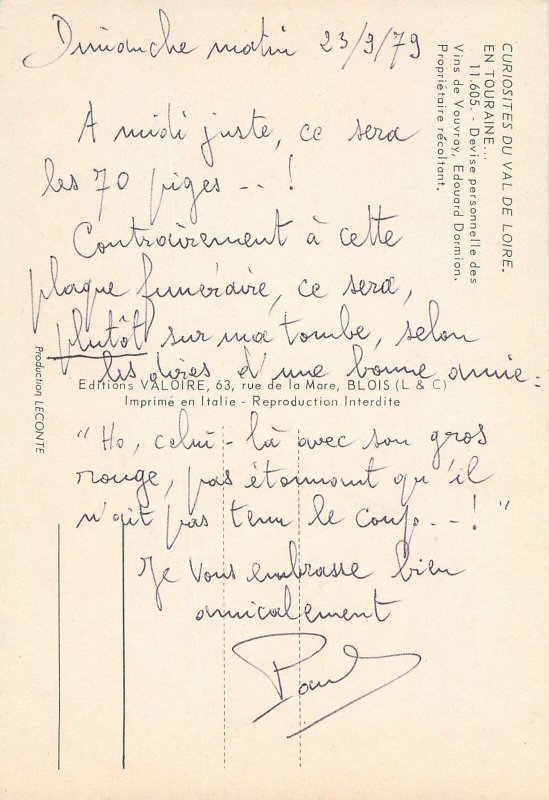 Dimanche matin 23/9/79
A midi juste, ce sera
les 70 piges --!
Contrairement à cette
plaque funéraire, ce sera,
plutôt sur ma tombe, selon
les dires d'une bonne amie :
"Ho, celui-là avec son gros
rouge, pas étonnant qu'il
n'ait pas tenu le coup --!"
Je Vous embrasse bien
amicalement
Paul
CURIOSITES DU VAL DE LOIRE.
EN TOURAINE...
11.605. - Devise personnelle des
Vins de Vouvray, Edouard Dormion.
Propriétaire récoltant.
Editions VALOIRE, 63, rue de la Mare, BLOIS (L & C)
Imprimé en Italie - Reproduction Interdite
Production LECONTE